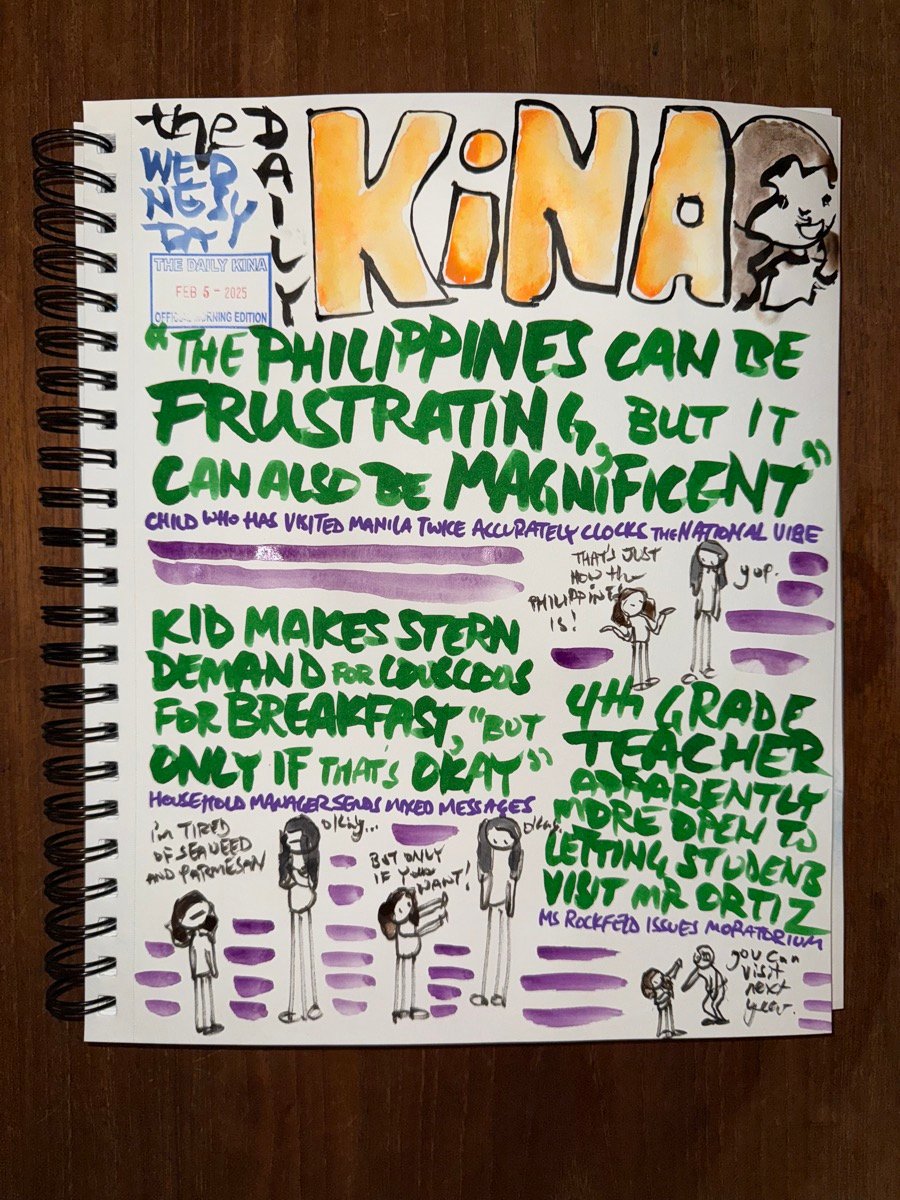 the DAILY
KiNA
WED
NESY
DA
THE DAILY KINA
FEB 5 - 2025
OFFICIAL MORNING EDITION
"THE PHILIPPINES CAN BE
FRUSTRATING, BUT IT
CAN ALSO BE MAGNIFICENT"
CHILD WHO HAS VISITED MANILA TWICE ACCURATELY CLOCKS THE NATIONAL VIBE
THAT'S JUST
HOW the
PHILIPPINES
IS!
yup.
KID MAKES STERN
DEMAND FOR COUSCOUS
FOR BREAKFAST, "BUT
ONLY IF THAT'S OKAY"
HOUSEHOLD MANAGER SENDS MIXED MESSAGES
i'm TIRED
OF SEAWEED
AND PARMESAN
okay...
BUT ONLY
IF YOU
WANT!
okay.
4th GRADE
TEACHER
APPARENTLY
MORE OPEN TO
LETTING STUDENTS
VISIT MR ORTIZ
MS ROCKFELD ISSUES MORATORIUM
you can
visit
next
year.